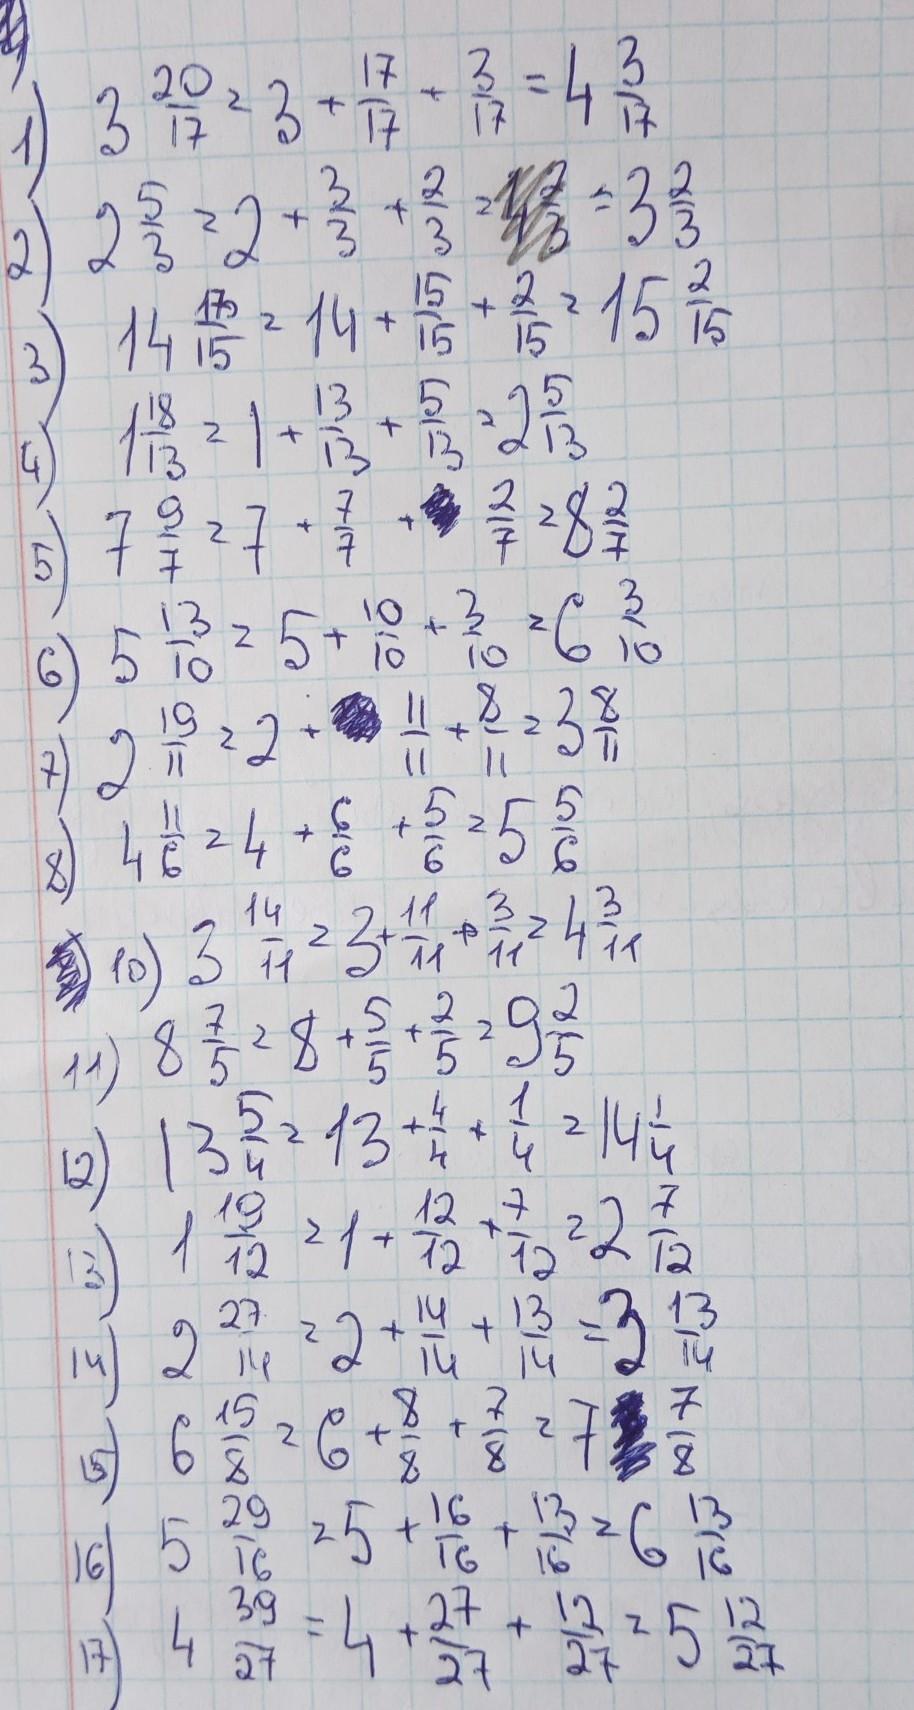 1) 3 20/17 = 3 + 17/17 + 3/17 = 4 3/17
2) 2 5/3 = 2 + 3/3 + 2/3 = = 3 2/3
3) 14 17/15 = 14 + 15/15 + 2/15 = 15 2/15
4) 1 18/13 = 1 + 13/13 + 5/13 = 2 5/13
5) 7 9/7 = 7 + 7/7 + 2/7 = 8 2/7
6) 5 13/10 = 5 + 10/10 + 3/10 = 6 3/10
7) 2 19/11 = 2 + 11/11 + 8/11 = 3 8/11
8) 4 11/6 = 4 + 6/6 + 5/6 = 5 5/6
10) 3 14/11 = 3 + 11/11 + 3/11 = 4 3/11
11) 8 7/5 = 8 + 5/5 + 2/5 = 9 2/5
12) 13 5/4 = 13 + 4/4 + 1/4 = 14 1/4
13) 1 19/12 = 1 + 12/12 + 7/12 = 2 7/12
14) 2 27/14 = 2 + 14/14 + 13/14 = 3 13/14
15) 6 15/8 = 6 + 8/8 + 7/8 = 7 7/8
16) 5 29/16 = 5 + 16/16 + 13/16 = 6 13/16
17) 4 39/27 = 4 + 27/27 + 12/27 = 5 12/27